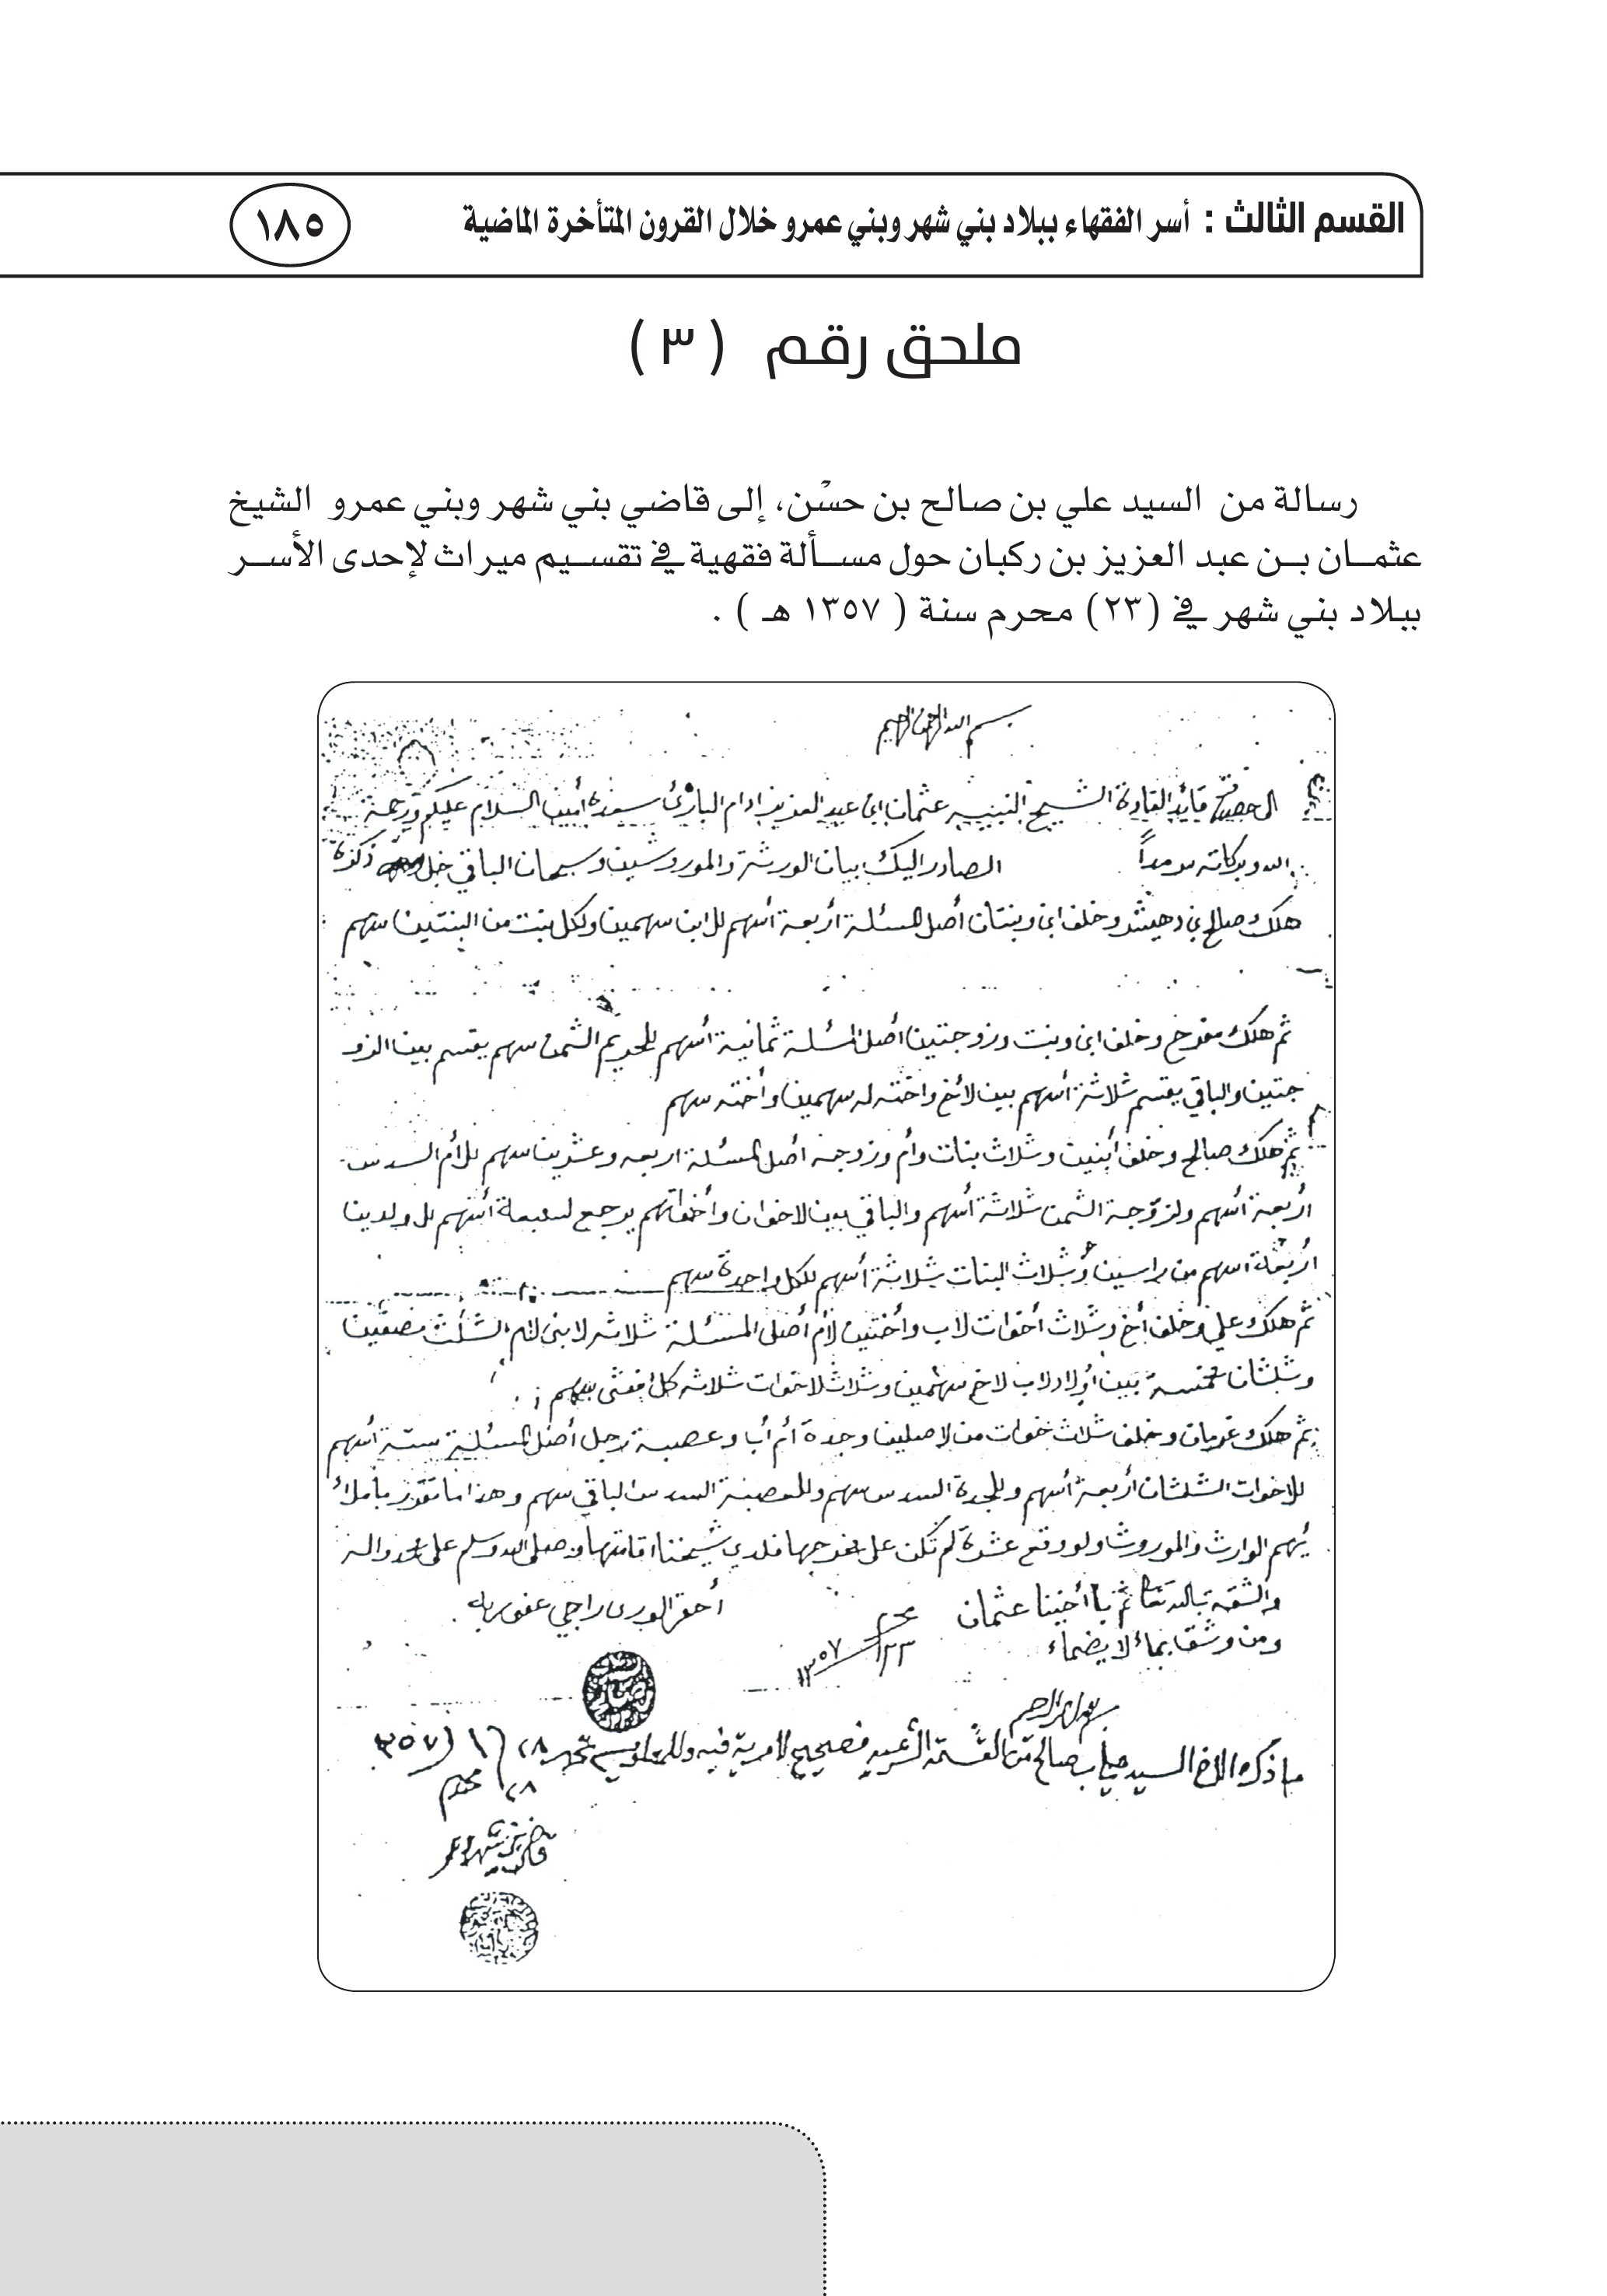 القسم الثالث : أسر الفقهاء ببلاد بني شهر وبني عمرو خلال القرون المتأخرة الماضية
١٨٥
ملحق رقم (٣)
رسالة من السيد علي بن صالح بن حسْن، إلى قاضي بني شهر وبني عمرو الشيخ
عثمــان بــن عبد العزيز بن ركبان حول مســألة فقهية في تقســيم ميراث لإحدى الأســر
ببلاد بني شهر في (٢٣) محرم سنة (١٣٥٧ هـ) .
بسم الله الرحمن الرحيم
الى حضرة قائد القادة الشيخ النبيه عثمان ابن عبد العزيز ادام البارئ سعده أمين السلام عليكم ورحمة
الله وبركاته سرمداً الصادر اليك بيان الورثة والموروثين وسهمان الباقي ذكره
هلك صالح بن دهيش وخلف ابن وبنتان أصل المسئلة أربعة أسهم للابن سهمين ولكل بنت من البنتين سهم
ثم هلك مفرح وخلف ابن وبنت وزوجتين أصل المسئلة ثمانية أسهم للحريم الثمن سهم يقسم بين الزو
جتين والباقي يقسم ثلاثة أسهم بين لأخ واخته له سهمين وأخته سهم
ثم هلك صالح وخلف أبنين وثلاث بنات وأم وزوجة أصل المسئلة اربعه وعشرين سهم للأم السدس
أربعة أسهم ولزوجة الثمن ثلاثة أسهم والباقي بين لاخوان وأخواتهم يرجع لسبعة أسهم للولدين
اربعة اسهم من راسين وثلاث البنات ثلاثة أسهم للكل واحدة سهم
ثم هلك علي وخلف أخ وثلاث أخوات لاب وأختين لأم أصل المسئلة ثلاثه لابن لام الثلث نصفين
وثلثان خمسة بين أولاد لاب لاخ سهمين وثلاث لاخوات ثلاثه كل انثى سهم
ثم هلك وخلف ثلاث خوات من لاصلين وجدة أم أبا وعصبة رجل أصل المسئلة ستة أسهم
للاخوات الثلثان أربعة أسهم وللجدة السدس سهم وللعصبة السدس الباقي سهم وهذا ما تقرر بأملا
ئهم الوارث والموروث ولو وقع عشرة لم تكن على فلدي شيخنا اقامتها وصلى الله وسلم على محمد واله
والثقة بالله تعا ثم يا أخينا عثمان أحقر الورى راجي عفو ربه
ومن وثق بماء لا يضماء
٢٣ محرم ١٣٥٧
بسم الله الرحمن الرحيم
ما ذكره الاخ السيد علي بن صالح من القسمة الشرعية فصحيح لا مرية فيه تحرير ٢٨/١/٣٥٧
٢٨ محرم
قاضي بني شهر